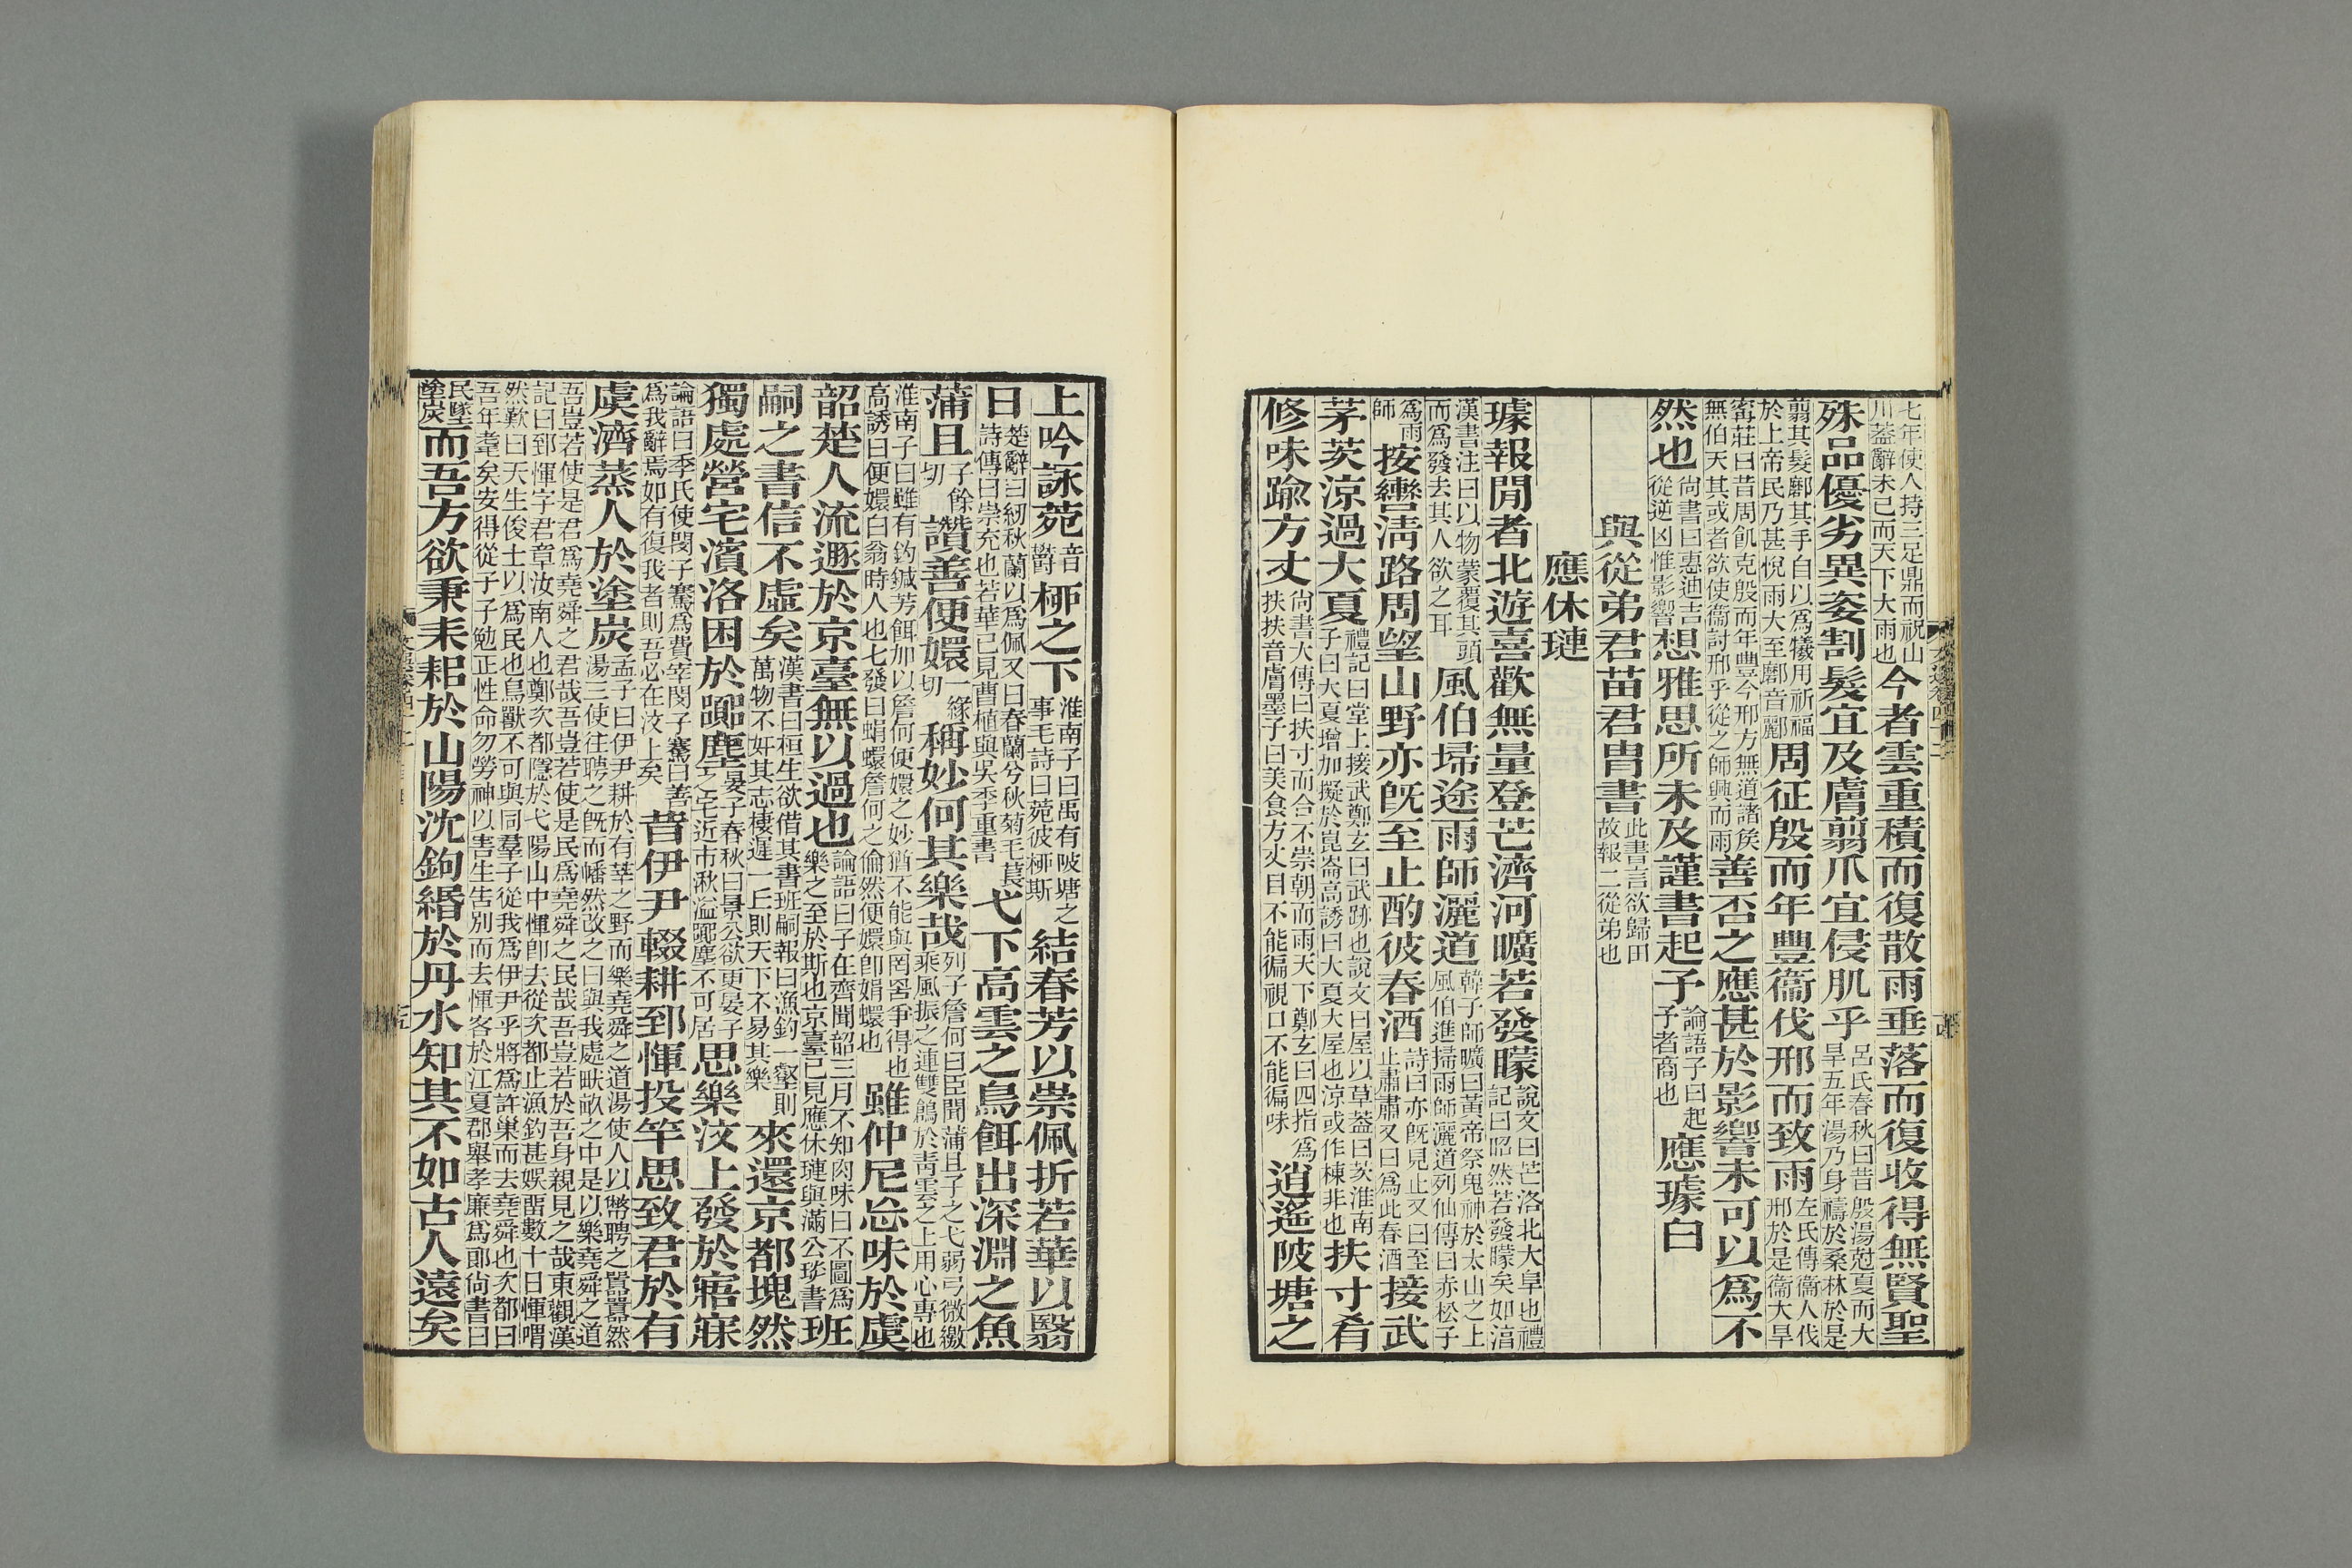 七年使人持三足鼎而祝山川葢辭未已而天下大雨也今者雲重積而復散雨垂落而復收得無賢聖
殊品優劣異姿割髮宜及膚翦爪宜侵肌乎呂氏春秋曰昔殷湯尅夏而大旱五年湯乃身禱於桑林於是
翦其髮𨟖其手自以爲犧用祈福於上帝民乃甚悅雨大至𨟖音麗周征殷而年豐衞伐邢而致雨左氏傳衞人伐邢於是衞大旱
甯莊曰昔周飢克殷而年豐今邢方無道諸矦無伯天其或者欲使衞討邢乎從之師興而雨善否之應甚於影響未可以爲不
然也尙書曰惠迪吉從逆凶惟影響想雅思所未及謹書起予論語子曰起予者商也應璩白
與從弟君苗君冑書此書言欲歸田故報二從弟也
應休璉
璩報閒者北遊喜歡無量登芒濟河曠若發矇說文曰芒洛北大阜也禮記曰昭然若發矇矣如淳
漢書注曰以物蒙覆其頭而爲發去其人欲之耳風伯埽途雨師灑道韓子師曠曰黃帝祭鬼神於太山之上風伯進掃雨師灑道列仙傳曰赤松子
爲雨師按轡淸路周望山野亦旣至止酌彼春酒詩曰亦旣見止又曰至止肅肅又曰爲此春酒接武
茅茨涼過大夏禮記曰堂上接武鄭玄曰武跡也說文曰屋以草葢曰茨淮南子曰大夏增加擬於崑崙高誘曰大夏大屋也涼或作棟非也扶寸肴
修味踰方丈尙書大傳曰扶寸而合不崇朝而雨天下鄭玄曰四指爲扶扶音膚墨子曰美食方丈目不能徧視口不能徧味逍遙陂塘之
上吟詠菀音鬱柳之下淮南子曰禹有陂塘之事毛詩曰菀彼柳斯結春芳以崇佩折若華以翳
日楚辭曰紉秋蘭以爲佩又曰春蘭兮秋菊毛萇詩傳曰崇充也若華已見曹植與吳季重書弋下高雲之鳥餌出深淵之魚
蒲且子餘切讚善便嬛一緣切稱妙何其樂哉列子詹何曰臣聞蒲且子之弋弱弓微繳乘風振之連雙鶬於靑雲之上用心專也
淮南子曰雖有釣鍼芳餌加以詹何便嬛之妙猶不能與罔罟爭得也高誘曰便嬛白翁時人也七發曰蜎蠉詹何之倫然便嬛卽娟蠉也雖仲尼忘味於虞
韶楚人流遯於京臺無以過也論語曰子在齊聞韶三月不知肉味曰不圖爲樂之至於斯也京臺已見應休璉與滿公琰書班
嗣之書信不虛矣漢書曰桓生欲借其書班嗣報曰漁釣一壑則萬物不奸其志棲遲一丘則天下不易其樂來還京都塊然
獨處營宅濱洛困於躑塵晏子春秋曰景公欲更晏子之宅近市湫溢躑塵不可居思樂汶上發於寤寐
論語曰季氏使閔子騫爲費宰閔子騫曰善爲我辭焉如有復我者則吾必在汶上矣昔伊尹輟耕郅惲投竿思致君於有
虞濟蒸人於塗炭孟子曰伊尹耕於有莘之野而樂堯舜之道湯使人以幣聘之囂囂然湯三使往聘之旣而幡然改之曰與我處畎畝之中是以樂堯舜之道
吾豈若使是君爲堯舜之君哉吾豈若使是民爲堯舜之民哉吾豈若於吾身親見之哉東觀漢記曰郅惲字君章汝南人也鄭次都隱於弋陽山中惲卽去從次都止漁釣甚娛留數十日惲喟
然歎曰天生俊士以爲民也鳥獸不可與同羣子從我爲伊尹乎將爲許巢而去堯舜也次都曰吾年耄矣安得從子子勉正性命勿勞神以害生告別而去惲客於江夏郡舉孝廉爲郞尙書曰
民墜塗炭而吾方欲秉耒耜於山陽沈鉤緡於丹水知其不如古人遠矣